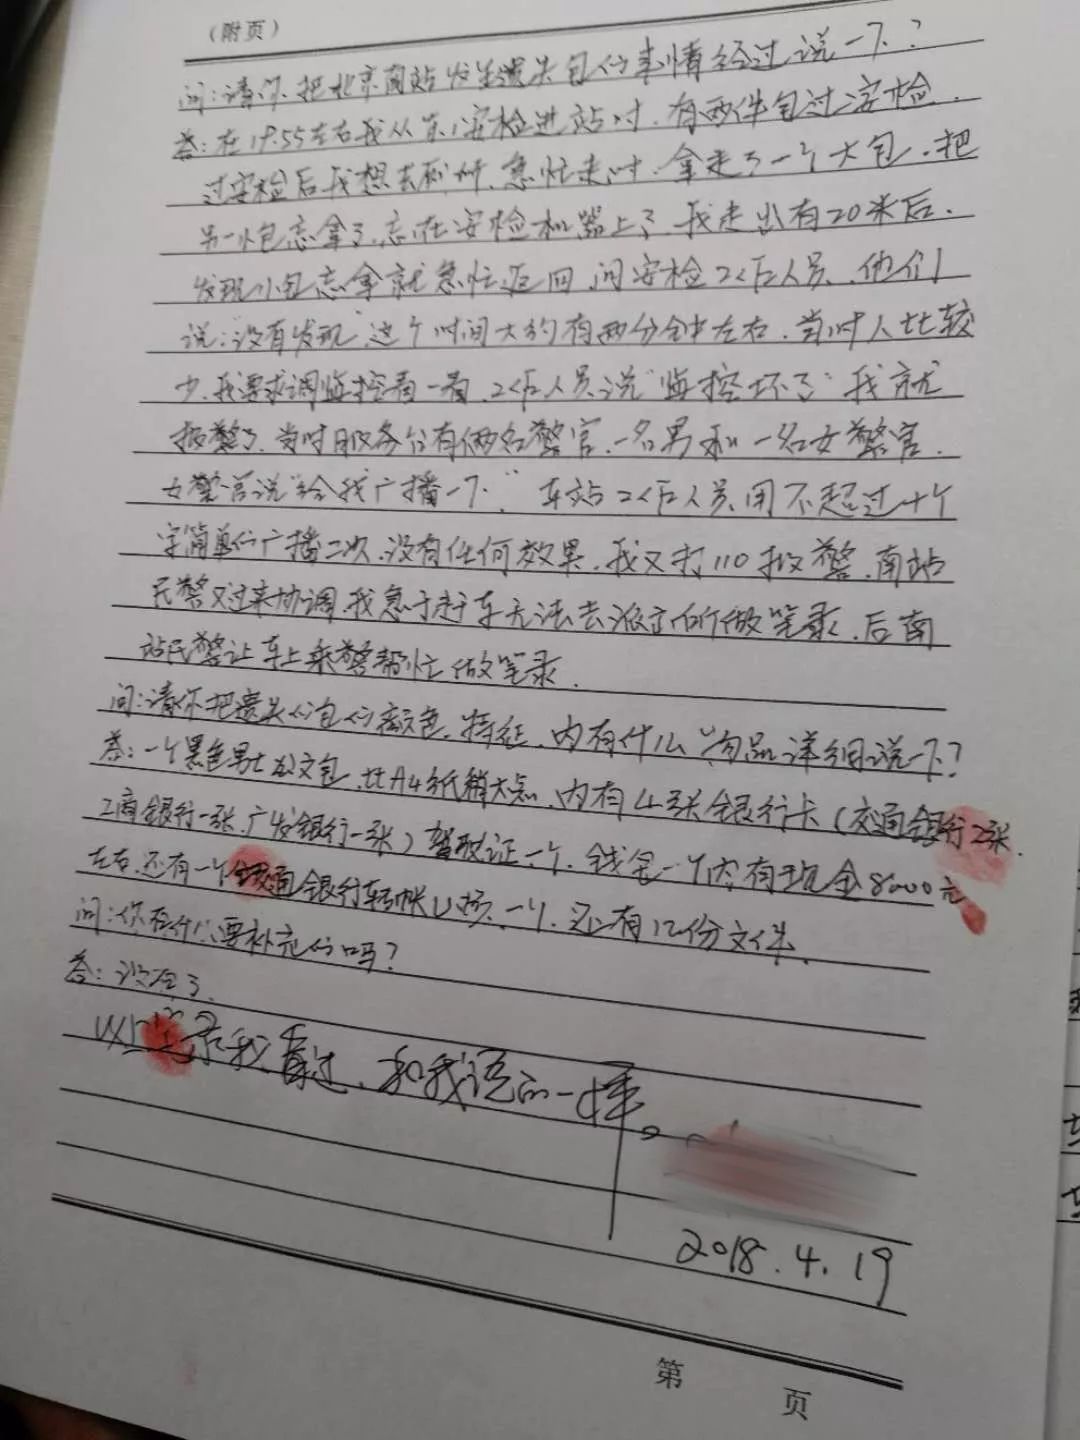 （附页）
问：请你把北京南站发生遗失包的事情经过说一下？
答：在19.55左右我从东1安检进站时，有两件包过安检，
过安检后我想去厕所，急忙走时，拿走了一个大包，把
另一小包忘拿了，忘在安检机器上了，我走出有20米后，
发现小包忘拿就急忙返回，问安检工作人员，他们
说：没有发现，这个时间大约有两分钟左右，当时人比较
少，我要求调监控看一看，工作人员说“监控坏了”我就
报警了，当时服务台有俩名警官，一名男和一名女警官，
女警官说“给我广播一下”，车站工作人员用不超过十个
字简单的广播二次，没有任何效果，我又打110报警，南站
民警又过来协调，我急于赶车无法去派出所做笔录，后南
站民警让车上乘警帮忙做笔录。
问：请你把遗失的包的颜色、特征、内有什么物品详细说一下？
答：一个黑色男士公文包，比A4纸稍大点，内有4张银行卡（交通银行2张，
工商银行一张，广发银行一张）驾驶证一个，钱包一个内有现金8000元
左右，还有一个交通银行转帐U盾一个，还有12份文件。
问：你有什么要补充的吗？
答：没有了。
以上笔录我看过，和我说的一样。
2018.4.19
第 页